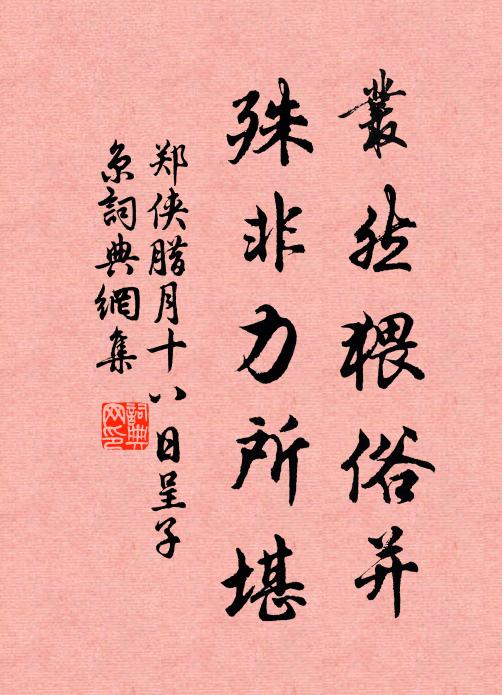 叢然猥俗并
殊非力所堪
郑侠腊月十八日呈子
京詞典網集
詞典
网印